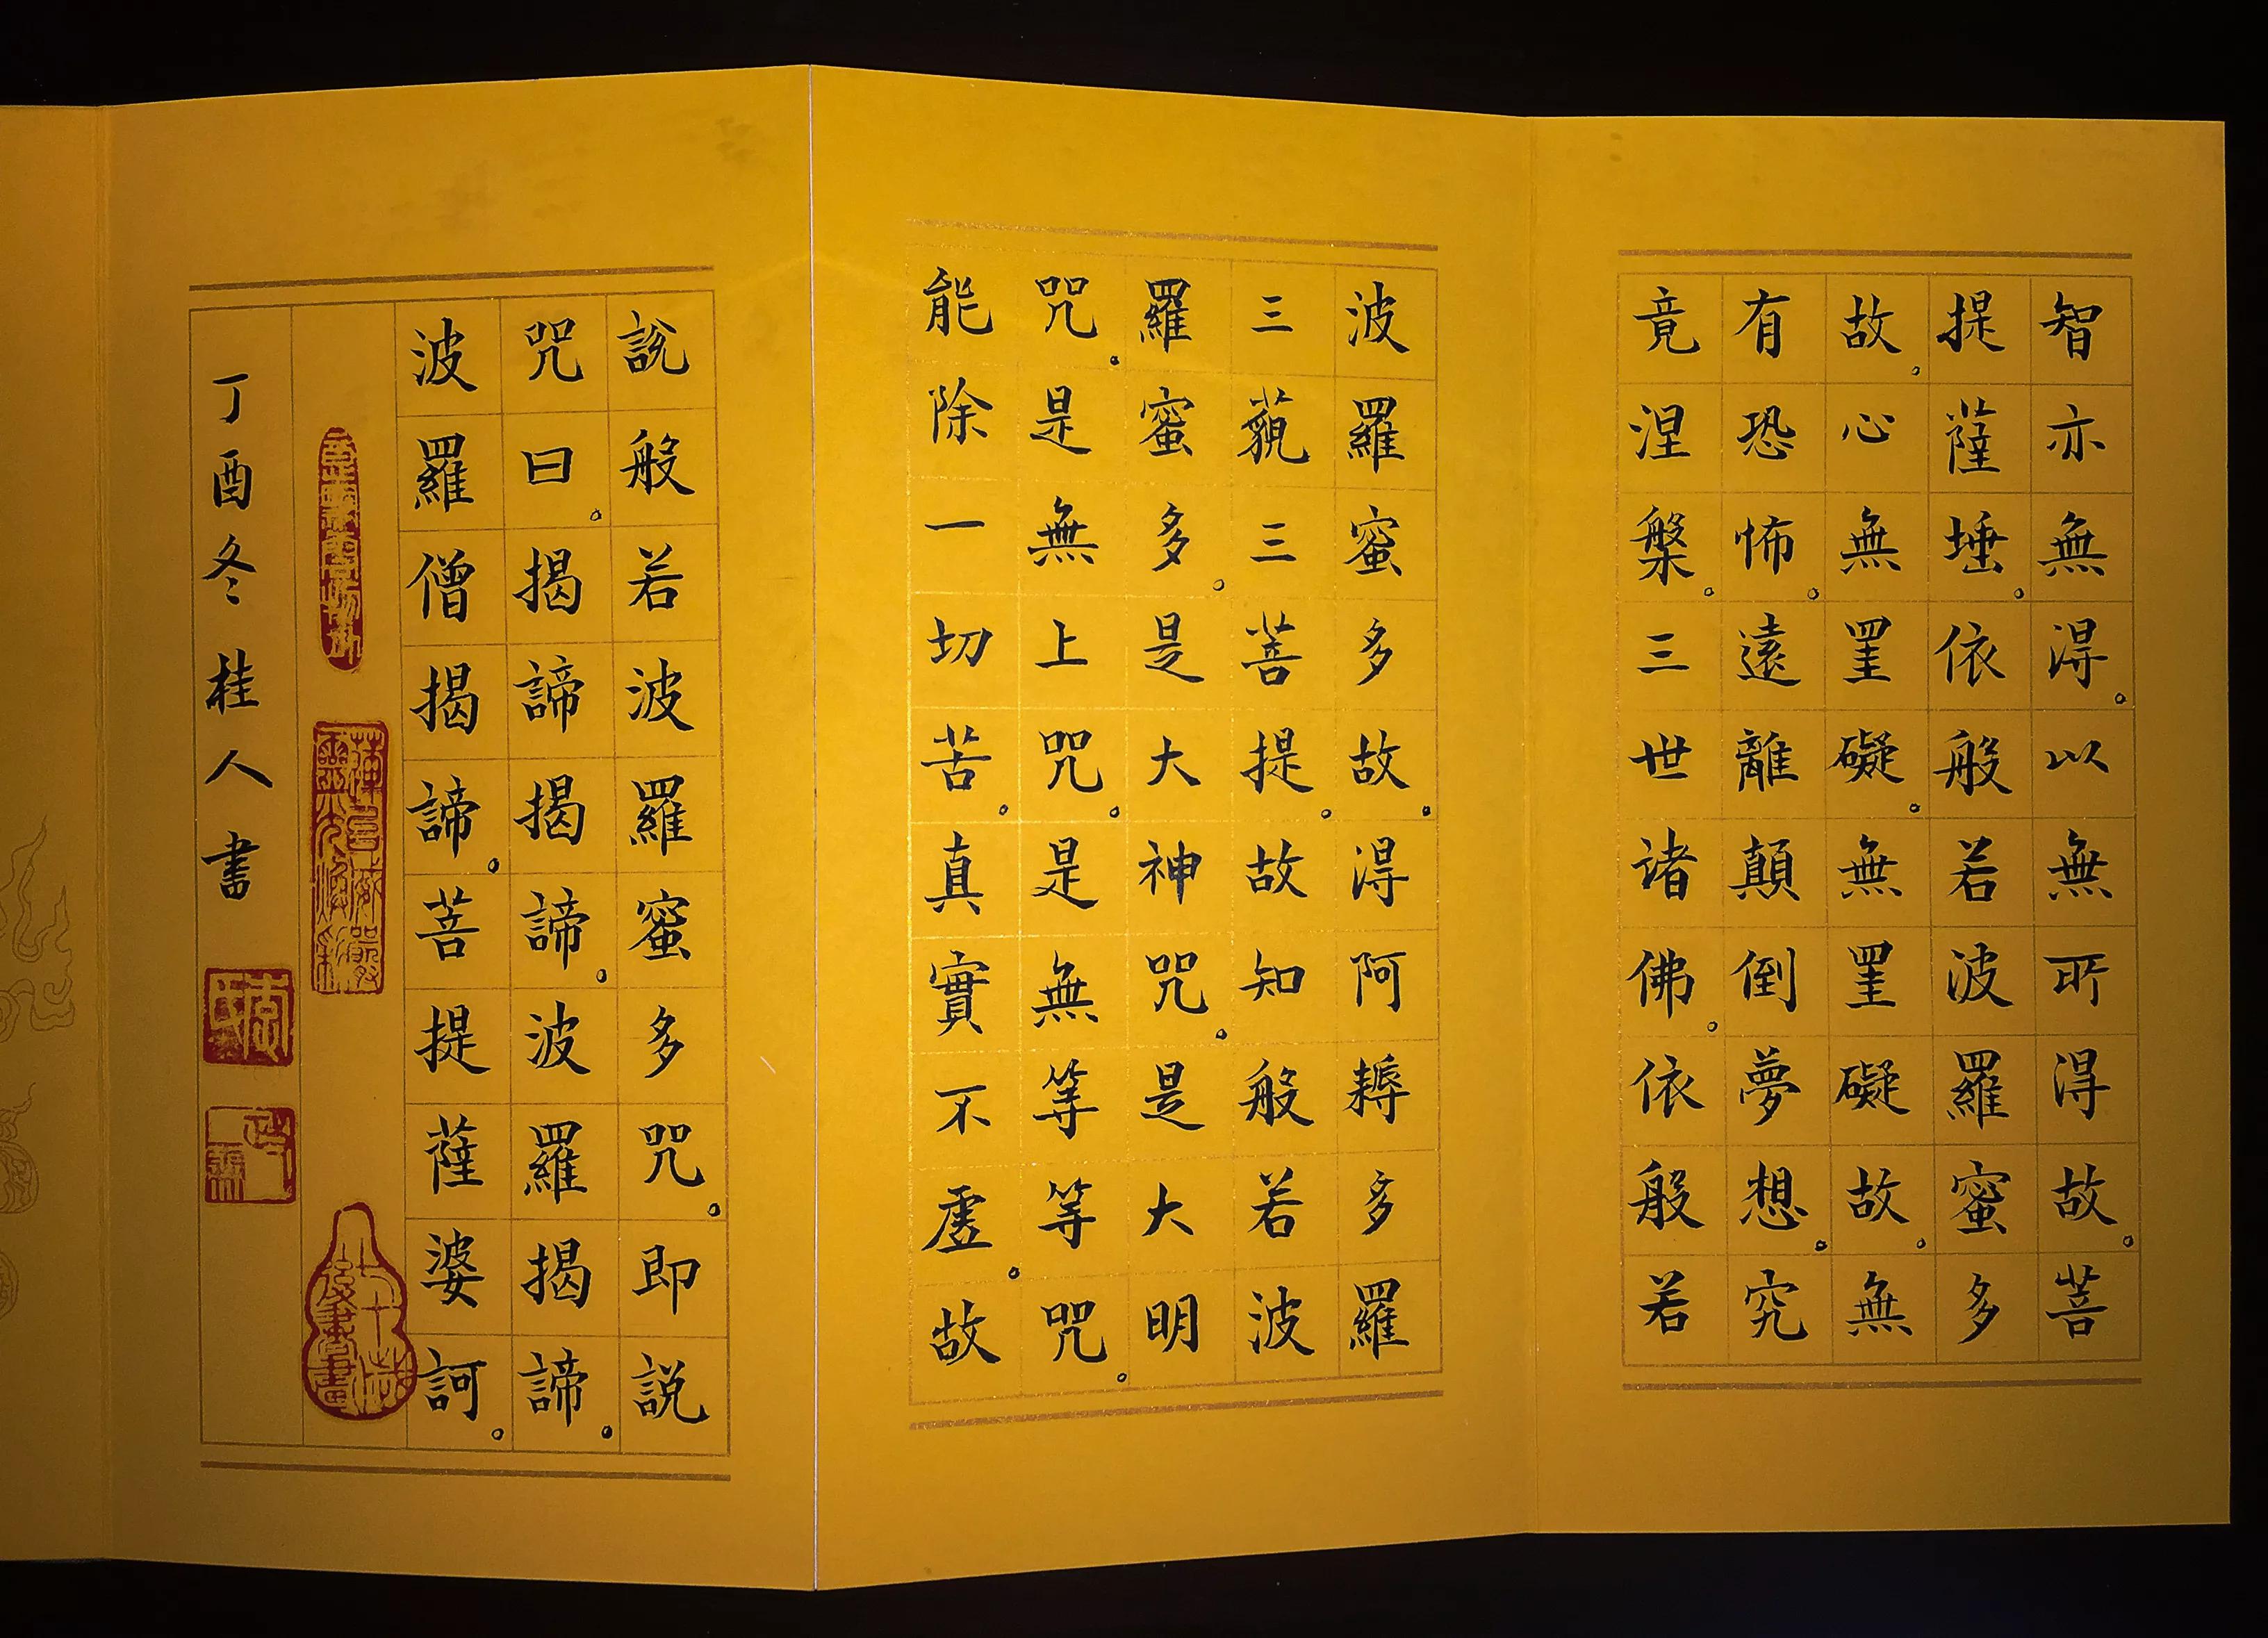 智亦無得。以無所得故。菩
提薩埵。依般若波羅蜜多
故。心無罣礙。無罣礙故。無
有恐怖。遠離顛倒夢想。究
竟涅槃。三世諸佛。依般若
波羅蜜多故。得阿耨多羅
三藐三菩提。故知般若波
羅蜜多。是大神咒。是大明
咒。是無上咒。是無等等咒。
能除一切苦。真實不虛。故
說般若波羅蜜多咒。即説
咒曰。揭諦揭諦。波羅揭諦。
波羅僧揭諦。菩提薩婆訶。
丁酉冬桂人書